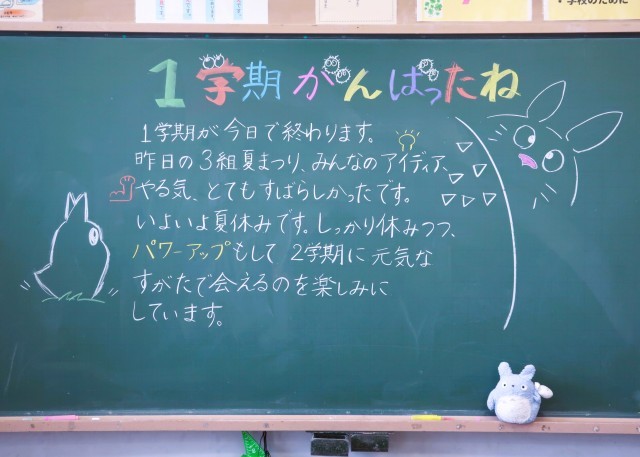 学校のために
1学期がんばったね
1学期が今日で終わります。
昨日の3組夏まつり、みんなのアイディア、
やる気、とてもすばらしかったです。
いよいよ夏休みです。しっかり休みつつ、
パワーアップもして 2学期に元気な
すがたで会えるのを楽しみに
しています。